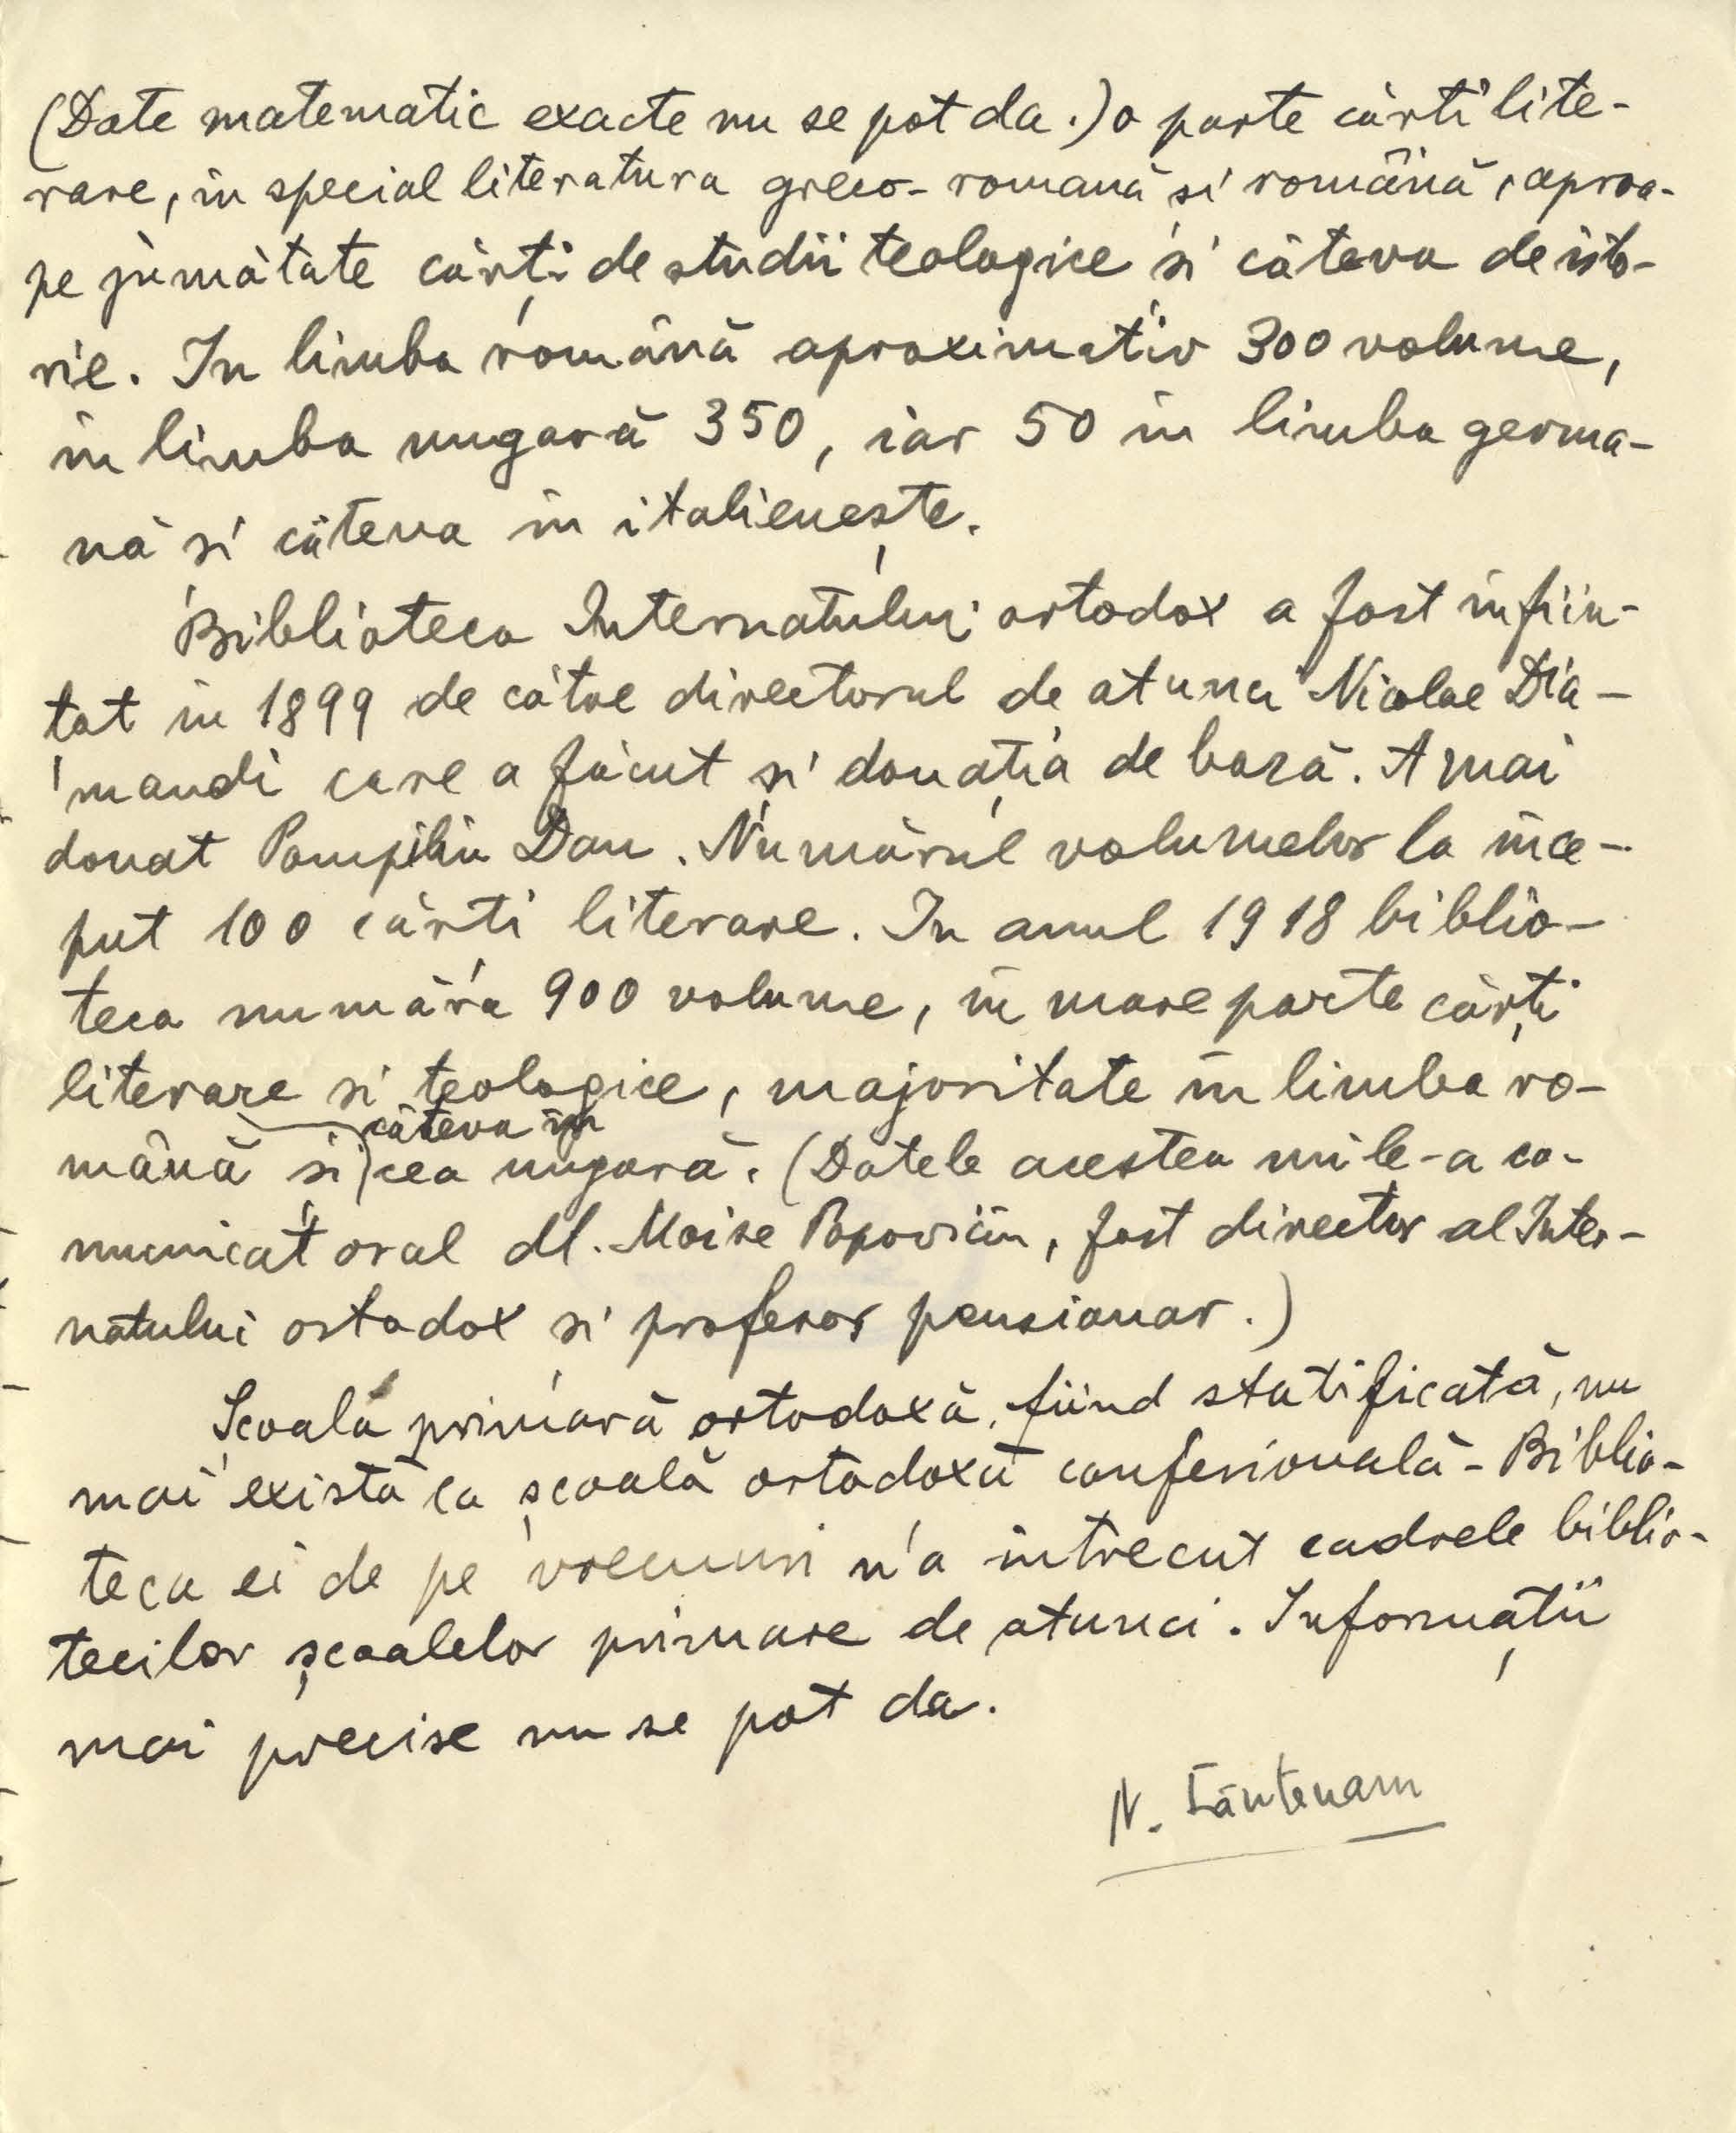 (Date matematic exacte nu se pot da.) o parte cărți lite-
rare, în special literatura greco-romană și română, aproa-
pe jumătate cărți de studii teologice și câteva de isto-
rie. In limba română aproximativ 300 volume,
în limba ungară 350, iar 50 în limba germa-
nă și câteva în italienește.
Biblioteca Internatului ortodox a fost înfiin-
țat în 1899 de către directorul de atunci Nicolae Dia-
mandi care a făcut și donația de bază. A mai
donat Pompiliu Dan. Numărul volumelor la înce-
put 100 cărți literare. In anul 1918 biblio-
teca număra 900 volume, în mare parte cărți
literare și teologice, majoritate în limba ro-
mână și câteva în cea ungară. (Datele acestea mi le-a co-
municat oral dl. Moise Popoviciu, fost director al Inter-
natului ortodox și profesor pensionar.)
Școala primară ortodoxă, fiind statificată, nu
mai există ca școală ortodoxă confesională - Biblio-
teca ei de pe vremuri n'a întrecut cadrele biblio-
tecilor școalelor primare de atunci. Informații
mai precise nu se pot da.
N.